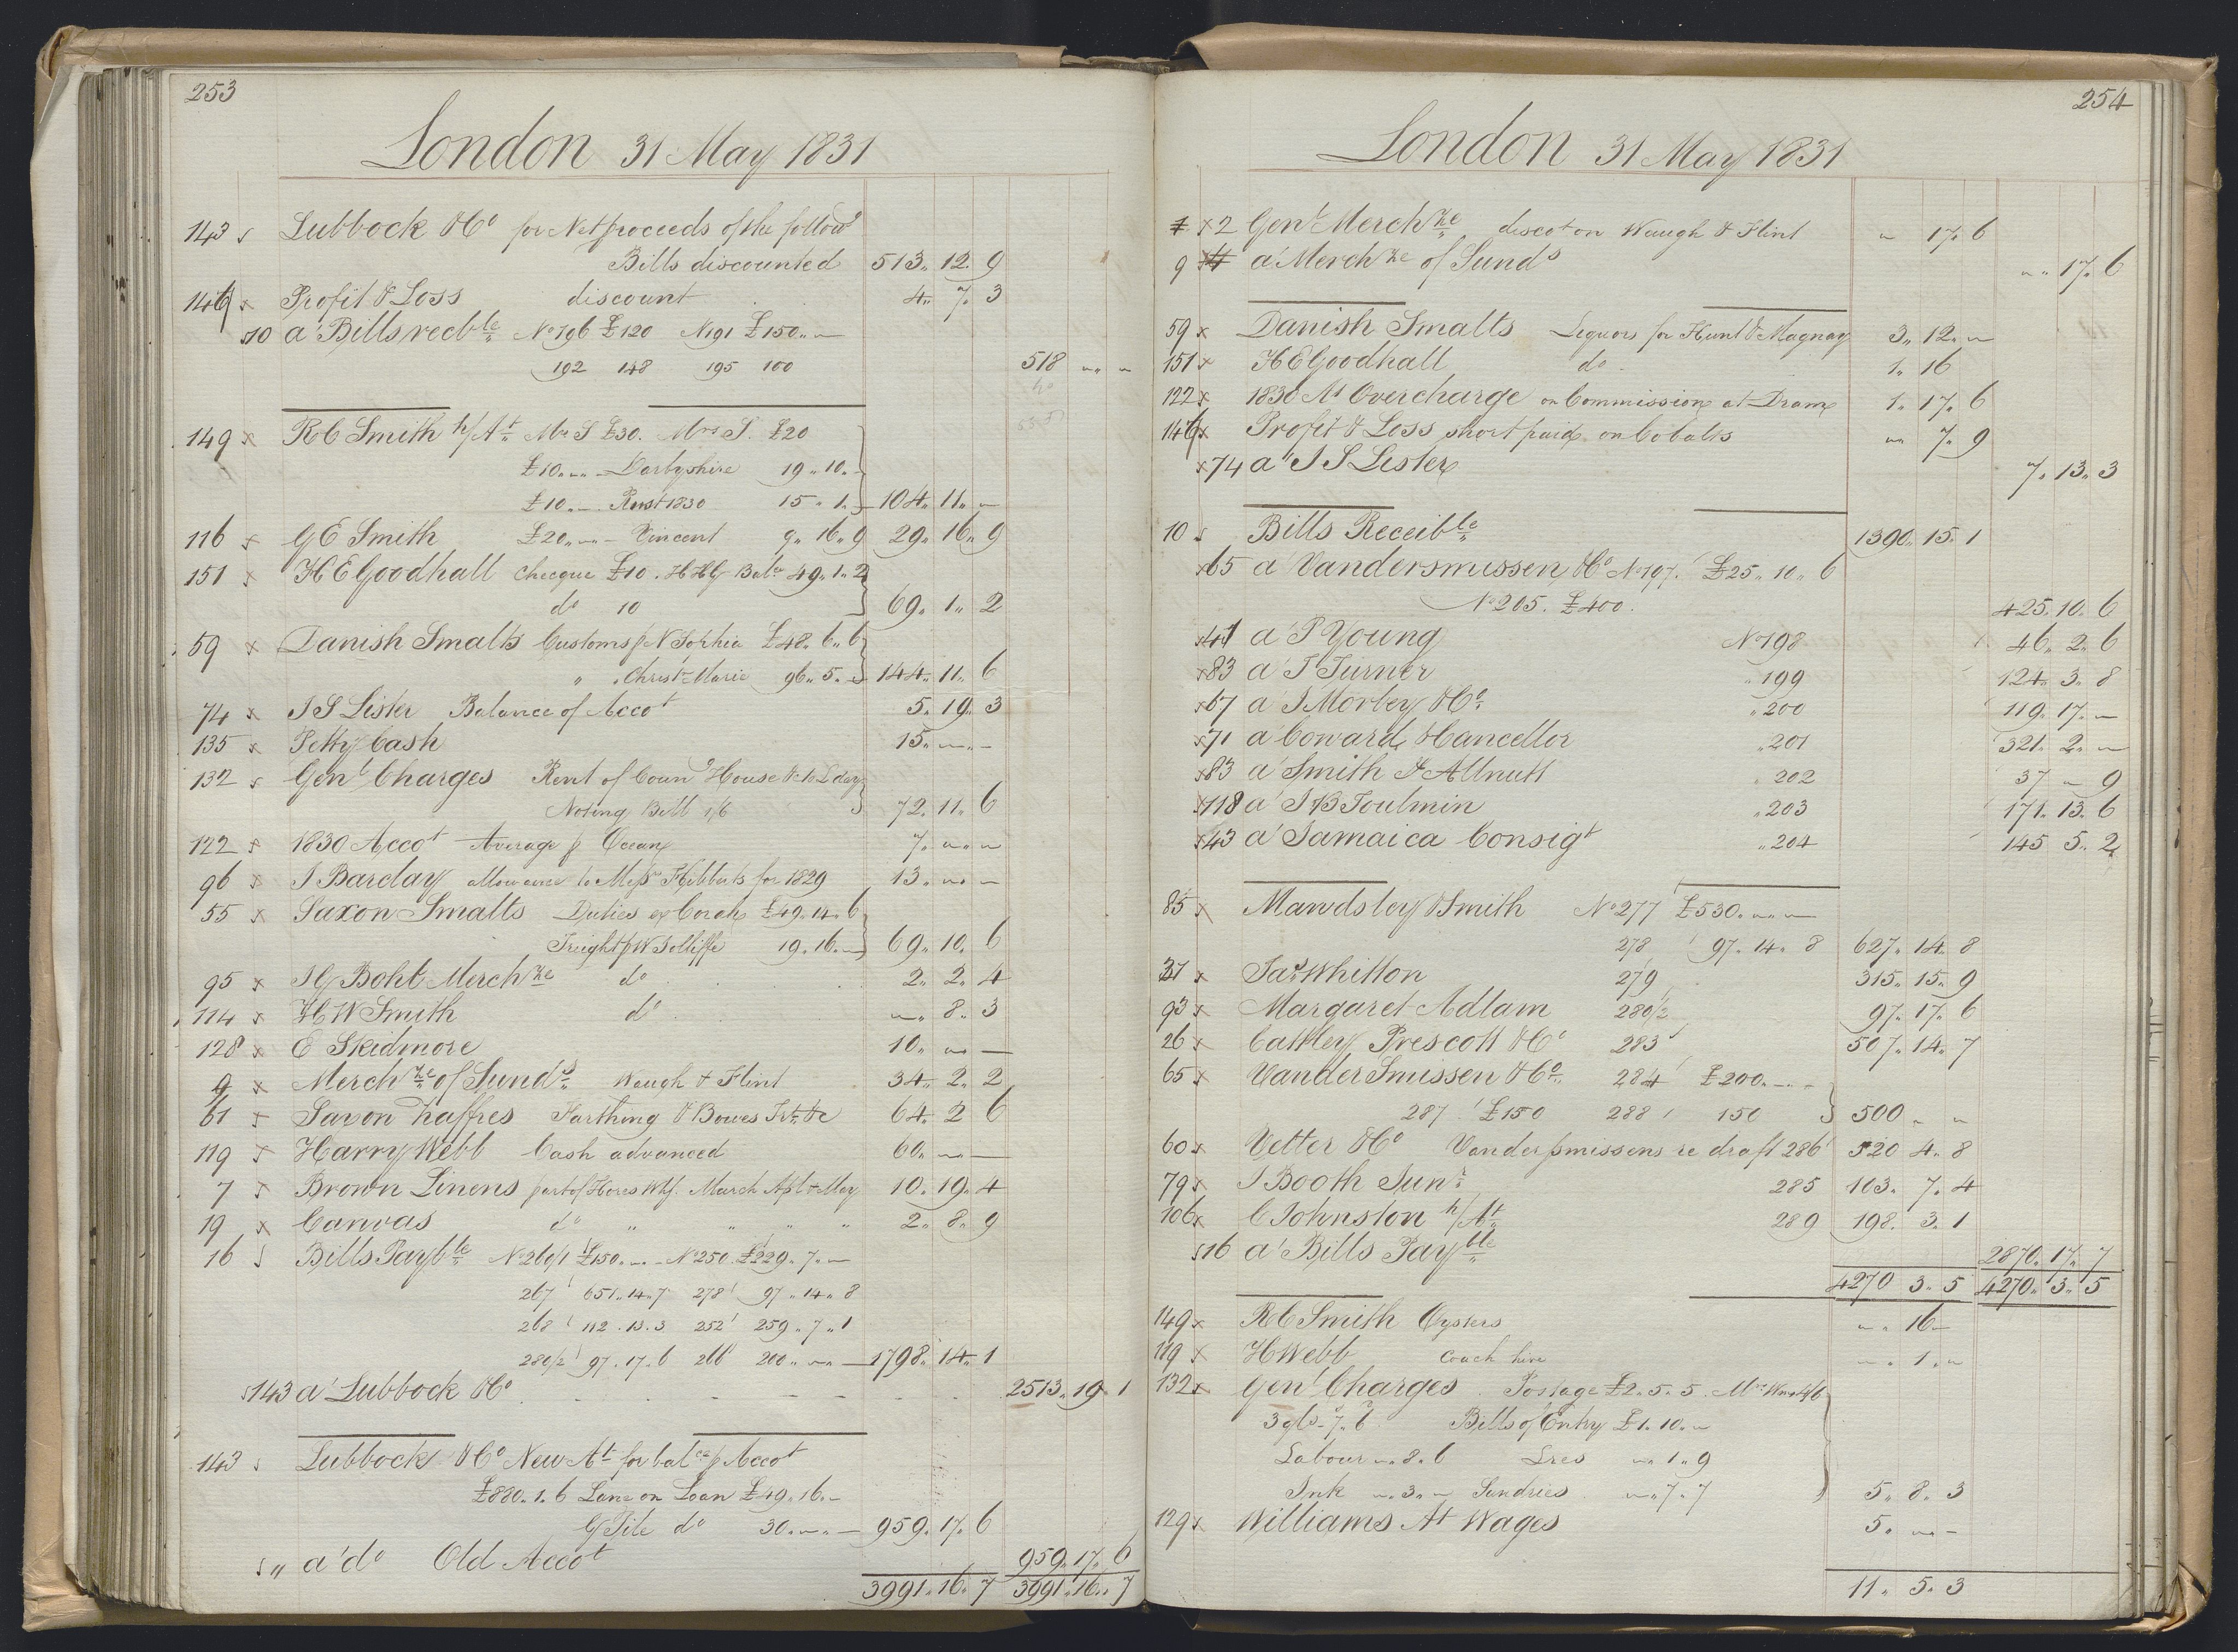 253
London 31 May 1831
143 Lubbock & Co for Net proceeds of the follow g
Bills discounted 513 " 12 " 9
146 x Profit & Loss discount 4 " 7 " 3
10 a' Bills recble No 196 £120 N 191 £150 " "
192 148 195 100 518 " "
149 x RC Smith p/At Mr S £30. Mrs S. £20
£10 " " Darbyshire 19 " 10 "
£10 " Rust 1830 15 " 1 " 104 " 11 "
116 x GE Smith £20 " " Vincent 9 " 16 " 9 29 " 16 " 9
151 x HE Goodhall Checque £10 . HHG Balce 49 " 1 " 2
do 10 69 " 1 " 2
59 x Danish Smalts Customs p N Sophia £48 " 6 " 6
" " Christ Marie 96 " 5 " 144 " 11 " 6
74 x JS Lister Balance of Accot 5 " 19 " 3
135 x Petty Cash 15 " " "
132 Genl Charges Rent of Coung House &c to L day
Noting Bill 1/6 72 " 11 " 6
122 x 1830 Accot Average p Ocean 7 " " "
96 x J Barclay allowance to Mess Hibberts for 1829 13 " " "
55 x Saxon Smalts Duties ex Corah £49 " 14 " 6
Freight p W Jolliffe 19 " 16 " 69 " 10 " 6
95 x JG Bohl Merchze do 2 " 2 " 4
114 x HW Smith do " 8 " 3
128 x E Skidmore 10 " " "
9 x Merchze of Sunds Waugh & Flint 34 " 2 " 2
61 x Saxon Zaffres Farthing & Bowes Frt &c 64 " 2 6
119 x Harry Webb Cash advanced 60 " " "
7 x Brown Linens part of Hores Whf. March Apl & May 10 " 19 " 4
19 x Canvas do " " " " 2 " 8 " 9
16 Bills Payble No 260/1 £150 " " No 250 £229 " 7 "
267 651 " 14 " 7 278 97 " 14 " 8
268 112 " 13 " 3 252 259 " 7 " 1
280/2 97 " 17 " 6 266 200 " " 1798 " 14 " 1
143 a' Lubbock & Co 2513 " 19 " 1
143 Lubbock & Co New At for balce p Accot
£880 " 1 " 6 Lane on Loan £49 " 16 "
G Pile do 30 " " 959 " 17 " 6
" a' do Old Accot 959 " 17 " 6
3991 " 16 " 7 3991 " 16 " 7
254
London 31 May 1831
x 2 Genl Merchze discot on Waugh & Flint " 17 " 6
9 a' Merchze of Sunds " " 17 " 6
59 x Danish Smalts Liquors for Hunt & Magnay 3 " 12 "
151 x HE Goodhall do 1 " 16
122 x 1830 At Overcharge on Commission at Dram 1 " 17 " 6
146 x Profit & Loss short paid on Cobalts " 7 " 9
x 74 a' J S Lister 7 " 13 " 3
10 Bills Receible 1390 " 15 " 1
x 65 a' Vandersmissen & Co No 197 £25 " 10 " 6
No 205. £400. 425 " 10 " 6
x 41 a' P Young No 198 46 " 2 " 6
x 83 a' J Turner " 199 124 " 3 " 8
x 67 a' J Morley & Co " 200 119 " 17 "
x 71 a' Coward & Cancellor " 201 321 " 2 "
x 83 a' Smith & Allnutt " 202 37 " 9
x 118 a' J B Toulmin " 203 171 " 13 " 6
x 43 a' Jamaica Consigt " 204 145 5 " 2
85 x Mawdsley & Smith No 277 £530 " " "
278 97 " 14 " 8 627 " 14 " 8
37 x Jas Whitton 279 315 " 15 " 9
93 x Margaret Adlam 280/2 97 " 17 " 6
26 x Cattley Prescott & Co 283 507 " 14 " 7
65 x Vander Smissen & Co 284 £200 " "
287 £150 288 150 500 " "
60 x Vetter & Co Vandersmissens re draft 286 520 4 " 8
79 x J Booth Junr 285 103 " 7 " 4
106 x C Johnston p/At 289 198 " 3 " 1
16 a' Bills Payble 2870 " 17 " 7
4270 3 " 5 4270 " 3 " 5
149 x RC Smith Oysters " " 16
119 x H Webb Coach hire " 1 "
132 x Genl Charges Postage £2 " 5 " 5
3 7 " 6 Bills of Entry £1 " 10 "
Labour " 8 " 6 " 1 " 9
Ink " 3 " Sundries " 7 " 7 5 " 8 " 3
129 x Williams At Wages 5 " " "
11 " 5 " 3